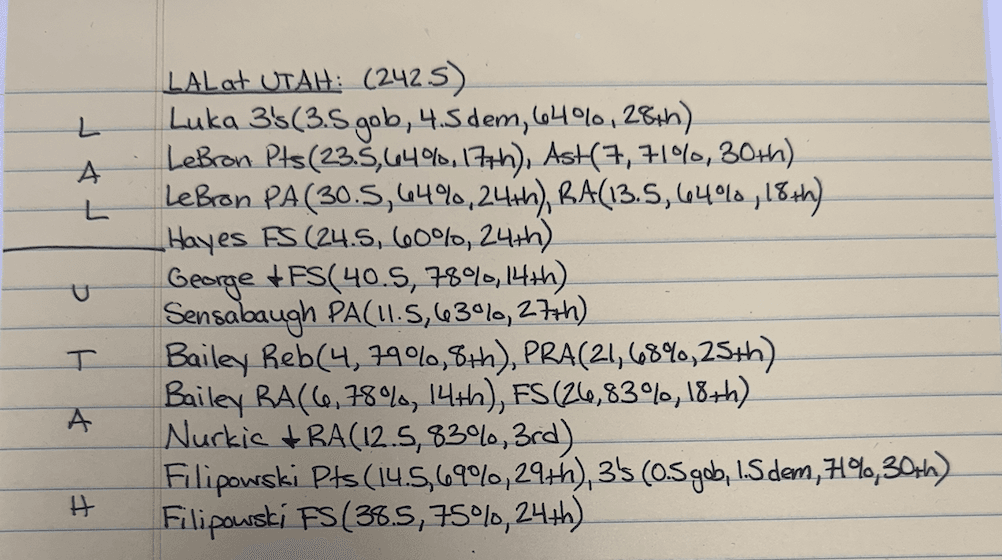 LAL at UTAH: (242.5)
L Luka 3's (3.5 gob, 4.5 dem, 64%, 28th)
A LeBron Pts (23.5, 64%, 17th), Ast (7, 71%, 30th)
L LeBron PA (30.5, 64%, 24th), RA (13.5, 64%, 18th)
Hayes FS (24.5, 60%, 24th)
U George ↓ FS (40.5, 78%, 14th)
Sensabaugh PA (11.5, 63%, 27th)
T Bailey Reb (4, 79%, 8th), PRA (21, 68%, 25th)
A Bailey RA (6, 78%, 14th), FS (26, 83%, 18th)
Nurkic ↓ RA (12.5, 83%, 3rd)
Filipowski Pts (14.5, 69%, 29th), 3's (0.5 gob, 1.5 dem, 71%, 30th)
H Filipowski FS (38.5, 75%, 24th)